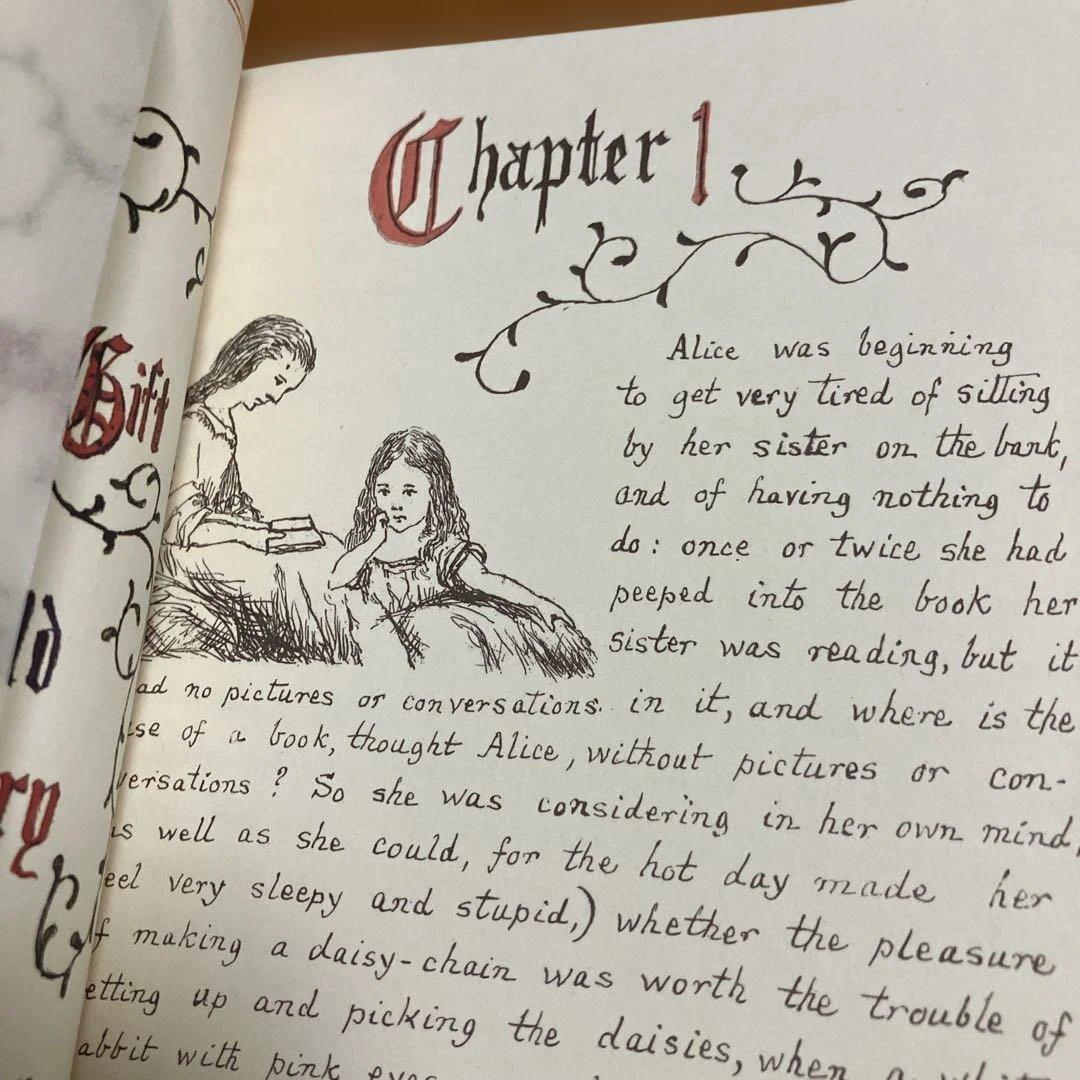 Gift
ld
ry
Chapter 1
Alice was beginning
to get very tired of sitting
by her sister on the bank,
and of having nothing to
do: once or twice she had
peeped into the book her
sister was reading, but it
ad no pictures or conversations in it, and where is the
se of a book, thought Alice, without pictures or con-
versations? So she was considering in her own mind,
as well as she could, for the hot day made her
eel very sleepy and stupid,) whether the pleasure
of making a daisy-chain was worth the trouble of
etting up and picking the daisies, when a
abbit with pink eyes